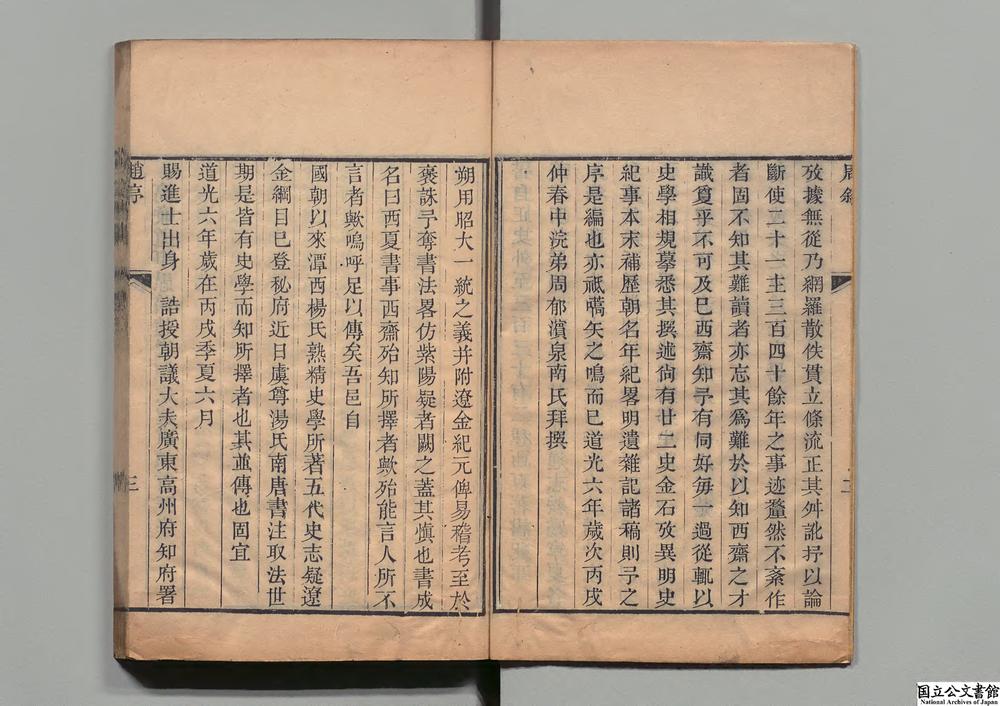 周敘
攷據無從乃網羅散佚貫立條流正其舛訛抒以論
斷使二十一主三百四十餘年之事迹釐然不紊作
者固不知其難讀者亦忘其為難於以知西齋之才
識夐乎不可及已西齋知予有同好每一過從輒以
史學相規摹悉其撰述尙有廿二史金石攷異明史
紀事本末補歷朝名年紀畧明遺雜記諸稿則予之
序是編也亦祗嚆矢之鳴而已道光六年歲次丙戌
仲春中浣弟周郁濱泉南氏拜撰
二
朔用昭大一統之義并附遼金紀元俾易稽考至於
褒誅予奪書法畧仿紫陽疑者闕之蓋其愼也書成
名曰西夏書事西齋殆知所擇者歟殆能言人所不
言者歟嗚呼足以傳矣吾邑自
國朝以來潭西楊氏熟精史學所著五代史志疑遼
金綱目已登秘府近日虞尊湯氏南唐書注取法世
期是皆有史學而知所擇者也其並傳也固宜
道光六年歲在丙戌季夏六月
賜進士出身　誥授朝議大夫廣東高州府知府署
趙序
三
国立公文書館
National Archives of Japan